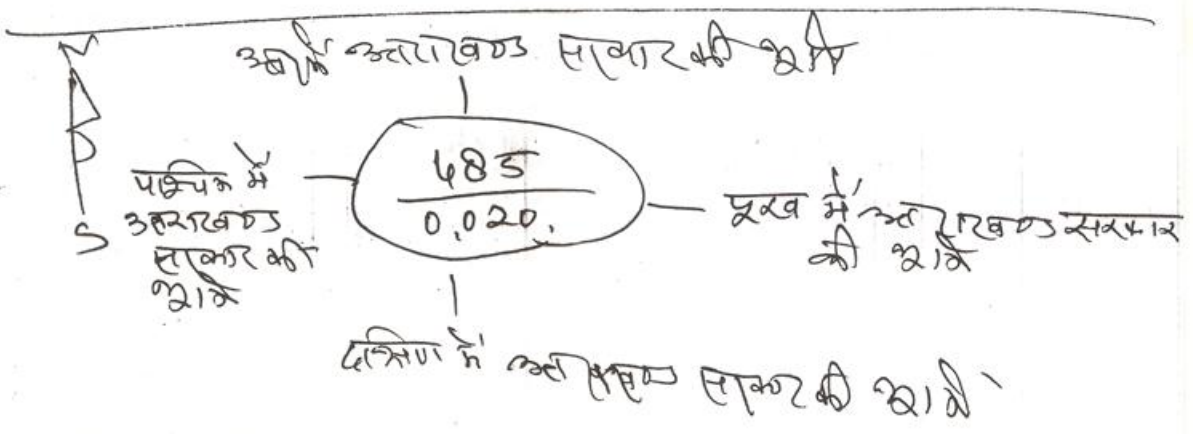 उत्तर में उत्तराखण्ड सरकार की भूमि
N
S
पश्चिम में
उत्तराखण्ड
सरकार की
भूमि
485
0.020
पूरब में उत्तराखण्ड सरकार
की भूमि
दक्षिण में उत्तराखण्ड सरकार की भूमि